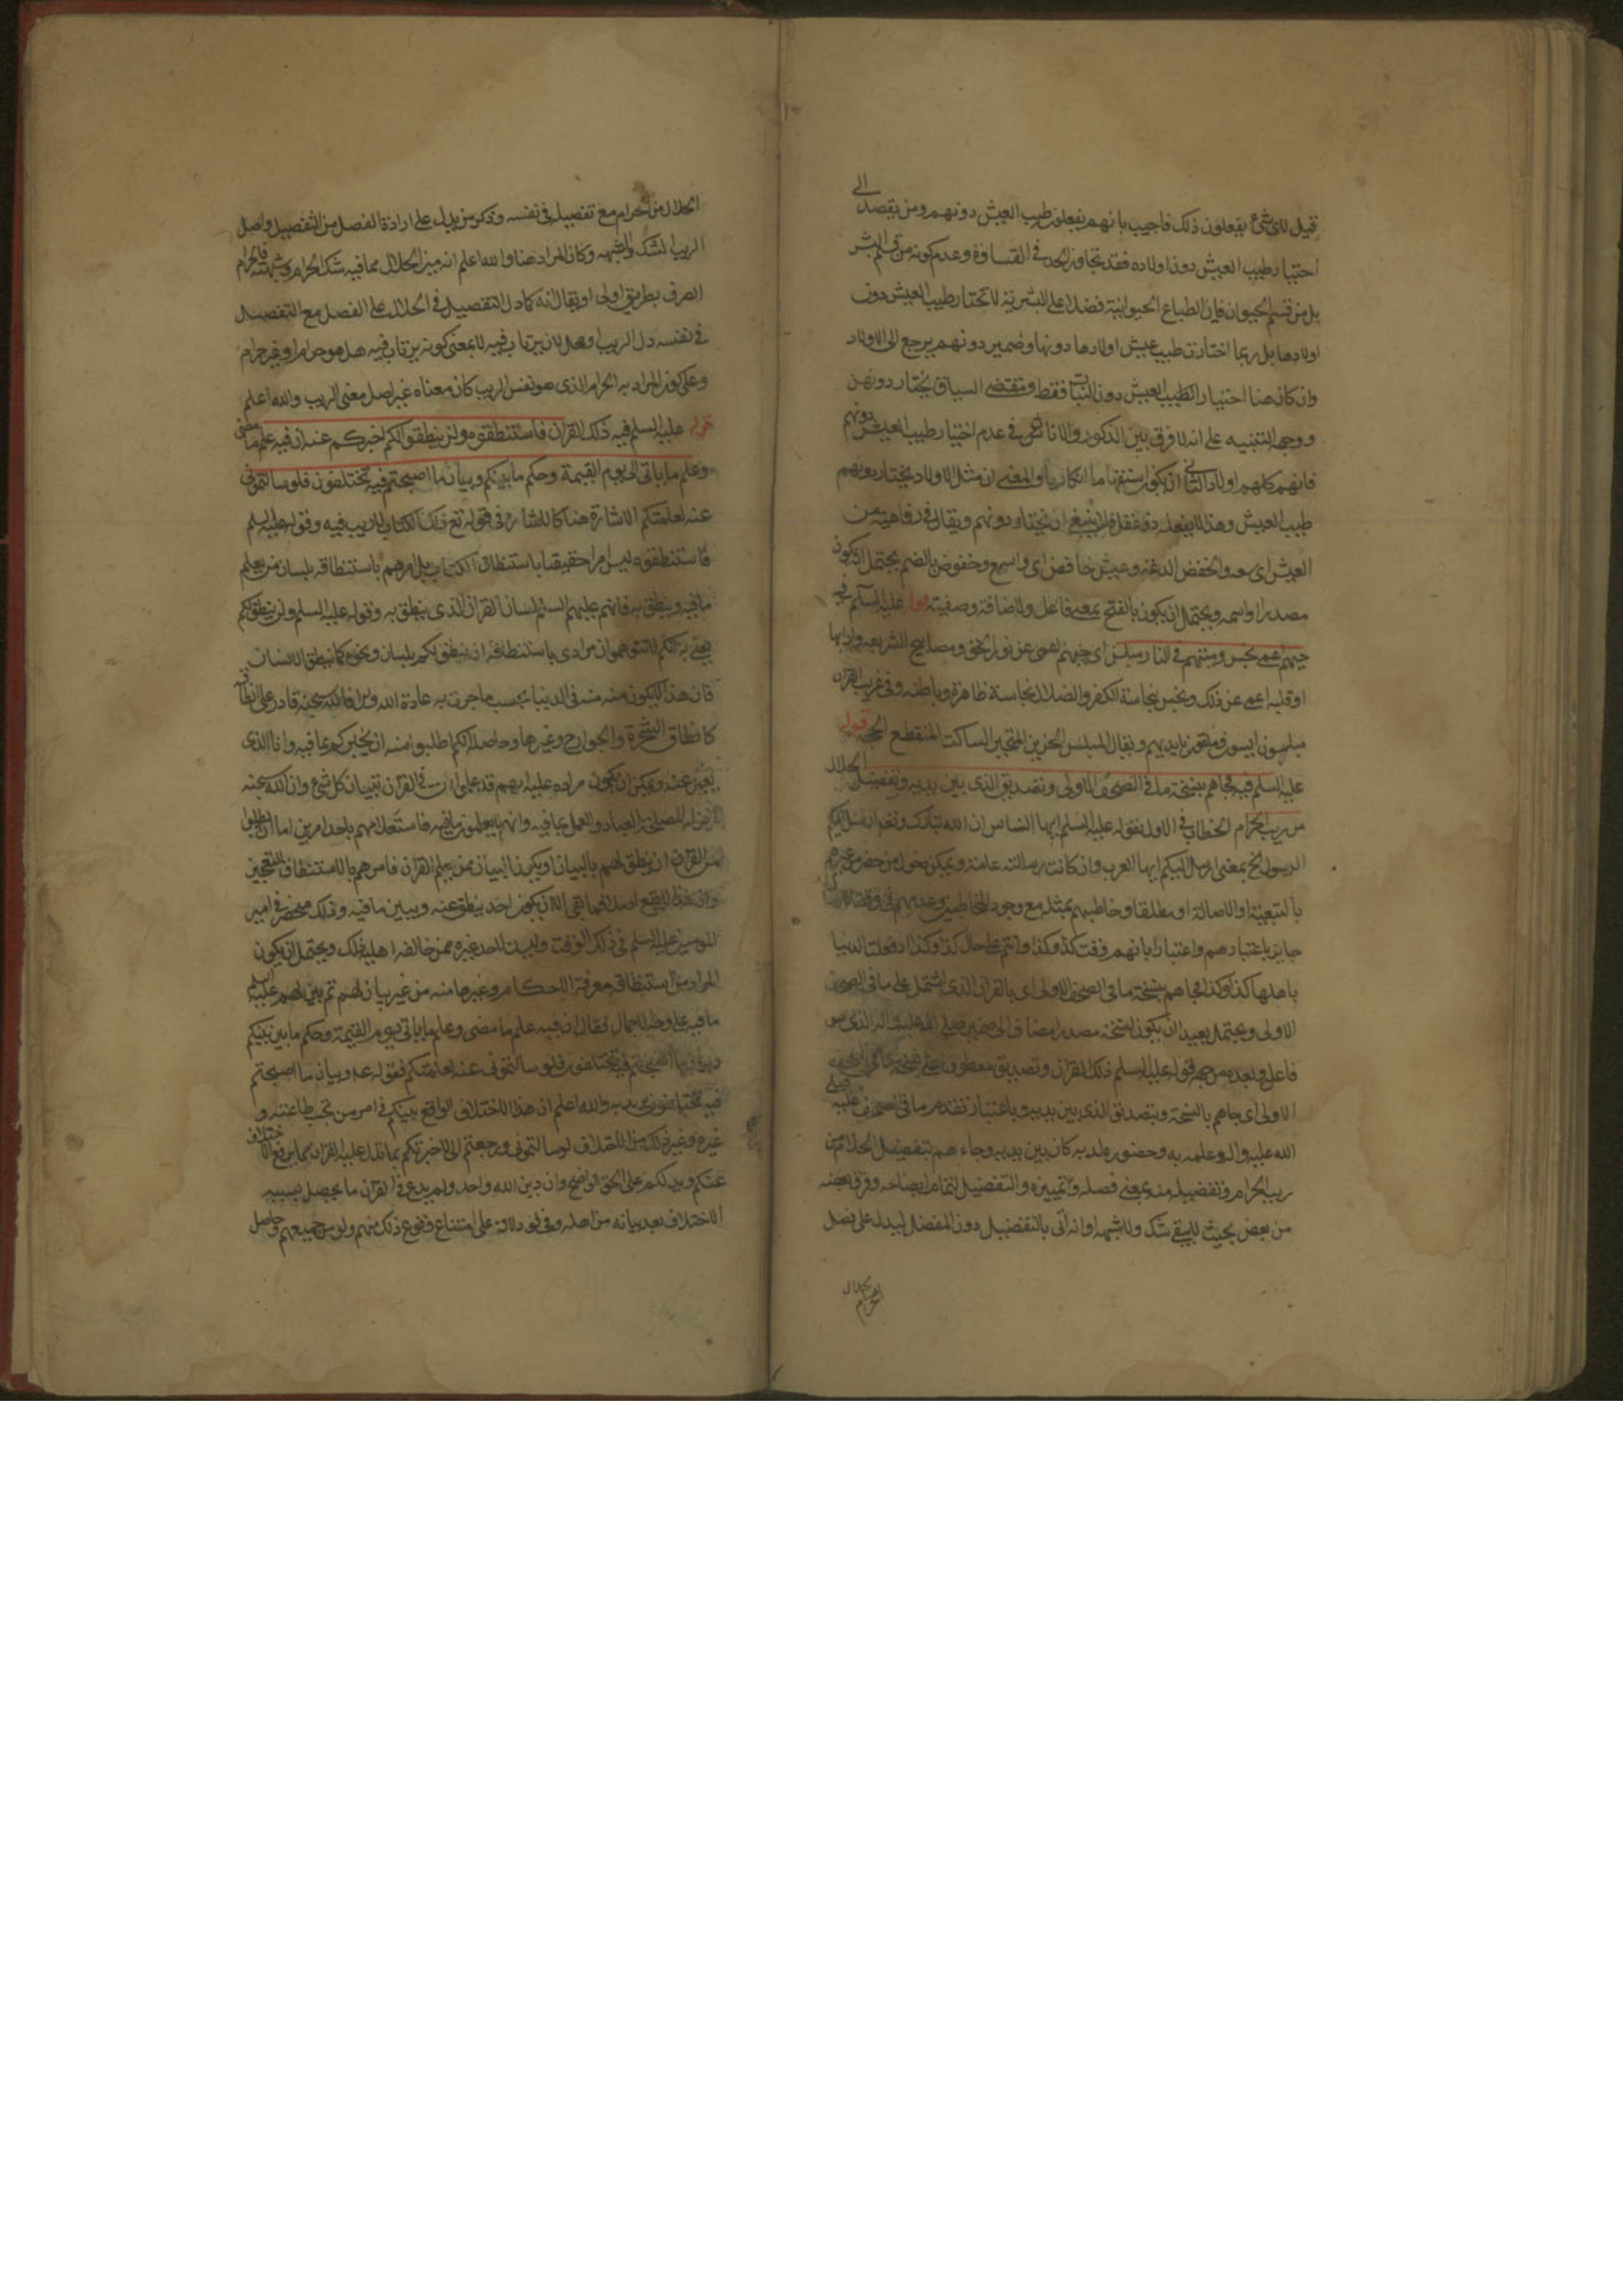 قيل لاي شئ يفعلون ذلك فاجيب بانهم يفعلون طيب العيش دونهم ومن يقصد الى
اختيار طيب العيش دون اولاده فقد تجاوز الحد في القساوة وعدم كونه من قسم البشر
بل من قسم الحيوان فان الطباع الحيوانية فضلا على البشرية لا تختار طيب العيش دون
اولادها بل ربما اختارت طيب عيش اولادها دونها وضمير دونهم يرجع الى الاولاد
وان كان هنا اختيار الطيب العيش دون البنات فقط ومقتضى السياق يختار دونهن
ووجه التنبيه على انه لا فرق بين الذكور والاناث في عدم اختيار طيب العيش دونهم
فانهم كلهم اولاد الثاني ان يكون استفهاما انكاريا والمعنى ان مثل الاولاد يختار دونهم
طيب العيش وهذا لا يفعله ذو عقل فلا ينبغي ان يختار دونهم ويقال في رفاهية من
العيش اي سعة والخفض الدعة وعيش خافض اي واسع وخفوض بالضم يحتمل ان يكون
مصدرا او اسمه ويحتمل ان يكون بالفتح بمعنى فاعل والاضافة وصفية قوله عليه السلم فيه
حيهم اعمى نجس وميتهم في النار مبلس اي حيهم اعمى عن نور الحق ومصابيح الشريعة وادابها
او قلبه اعمى عن ذلك ونجس بنجاسة الكفر والضلال نجاسة ظاهرة وباطنة وفي غريب القران
مبلسون ايسون وملقون بايديهم ويقال المبلس الحزين المتحير الساكت المنقطع الحجة قوله
عليه السلم فيه فجاهم بنسخة ما في الصحف الاولى وتصديق الذي بين يديه وتفصيل الحلال
من ريب الحرام الخطاب في الاول بقوله عليه السلم ايها الناس ان الله تبارك وتعالى ارسل اليكم
الرسول الخ بمعنى ارسل اليكم ايها العرب وان كانت رسالته عامة ويمكن دخول من حضر من غيرهم
بالتبعية او الاصالة او مطلقا وخاطبهم بمثله مع وجود المخاطبين وعدمهم في وقت
جايز باعتبارهم واعتبار ابائهم ففت كذا وكذا وانتم على حال كذا وكذا اذ فولت الدنيا
باهلها كذا وكذا فجاهم بنسخة ما في الصحف الاولى اي بالقران الذي اشتمل على ما في الصحف
الاولى ويحتمل بعيدا ان يكون لنسخة مصدرا مضافا الى ضميره صلى الله عليه واله الذي هو
فاعل وبعده من جهة قوله عليه السلم ذلك القران وتصديق معطوف على نسخة
الاولى اي جاهم بالنسخة وبتصديق الذي بين يديه وباعتبار تقدم ما في الصحف عليه صلى
الله عليه واله وعلمه به وحضوره لديه كان بين يديه وجاءهم بتفصيل الحلال من
ريب الحرام وتفصيله منه بمعنى فصله وتمييزه والتفصيل لتمام ايضاحه وفرق بعضه
من بعض بحيث لا يبقى شك ولا شبهة او انه اتى بالتفصيل دون المفصل ليدل على فصل
الحلال
الحرام
الحلال من الحرام مع تفصيل في نفسه وذكر من يدل على ارادة الفصل من التفصيل واصل
الريب الشك والشبهة وكان المراد هنا والله اعلم انه ميز الحلال مما فيه شك الحرام وشبهته فالحرام
الصرف بطريق اولى او يقال انه كما دل التفصيل في الحلال على الفصل مع التفصيل
في نفسه دل الريب اوهل لان يرتاب فيه لا بمعنى كونه يرتاب فيه هل هو حرام او غير حرام
وعلى كون المراد به الحرام الذي هو نفس الريب كان معناه غير اصل معنى الريب والله اعلم
قوله عليه السلم فيه ذلك القران فاستنطقوه ولن ينطق لكم اخبركم عنه ان فيه علم ما مضى
وعلم ما ياتي الى يوم القيمة وحكم ما بينكم وبيان ما اصبحتم فيه تختلفون فلو سالتموني
عنه لعلمتكم الاشارة هنا كالاشارة في قوله تع ذلك الكتاب لا ريب فيه وقوله عليه السلم
فاستنطقوه ليس امرا حقيقيا باستنطاق الكتاب بل امرهم باستنطاقه بلسان من يعلم
ما فيه وينطق به فانهم عليهم السلم لسان القران الذي ينطق به وقوله عليه السلم ولن ينطق لكم
يعني به انكم لا تتوهموا ان مرادي باستنطاقه ان ينطق لكم بلسان ونحوه كما ينطق الانسان
فان هذا لا يكون منه في الدنيا بحسب ما جرت به عادة الله وان كان الله سبحانه قادر على انطاقه
كانطاق الشجرة والجوارح وغيرها وحاصله انكم اطلبوا منه ان يخبركم بما فيه وانا الذي
يعبر عنه ويمكن ان يكون مراده عليه انهم قد علموا ان في القران تبيان كل شئ وان الله سبحنه
انزله لمصلحة العباد والعمل بما فيه وانهم لا يعلمون ما فيه فاستعلامهم باحد امرين اما ان يطلبوا
من القران ان ينطق لهم بالبيان او يكون البيان ممن يعلم القران فامرهم بالاستنطاق للتعجيز
وان هذا لا يقع اصلا فما بقي الا ان يكون احد ينطق عنه ويبين ما فيه وذلك منحصر في امير
المومنين عليه السلم في ذلك الوقت وليس لاحد غيره ممن خالفه اهلية ذلك ويحتمل ان يكون
المراد من استنطاقه معرفة الاحكام وغيرها منه من غير بيان لهم ثم بين لهم عليه السلم
ما فيه على وجه الاجمال فقال ان فيه علم ما مضى وعلم ما ياتي الى يوم القيمة وحكم ما بين بينكم
وبيان ما اصبحتم فيه تختلفون فلو سالتموني عنه لعلمتكم فقوله عم وبيان ما اصبحتم
فيه تختلفون يريد به والله اعلم ان هذا الاختلاف الواقع بينكم في امر من تجب طاعته و
غيره وغير ذلك من الاختلاف لو سالتموني ورجعتم الي لاخبرتكم بما يدل عليه القران مما يرفع الاختلاف
عنكم ويدلكم على الحق الواضح وان دين الله واحد ولم يدع في القران ما يحصل بسببه
الاختلاف بعد بيانه من اهله وفي لو دلالة على امتناع وقوع ذلك منهم ولو من جميعهم وحاصل